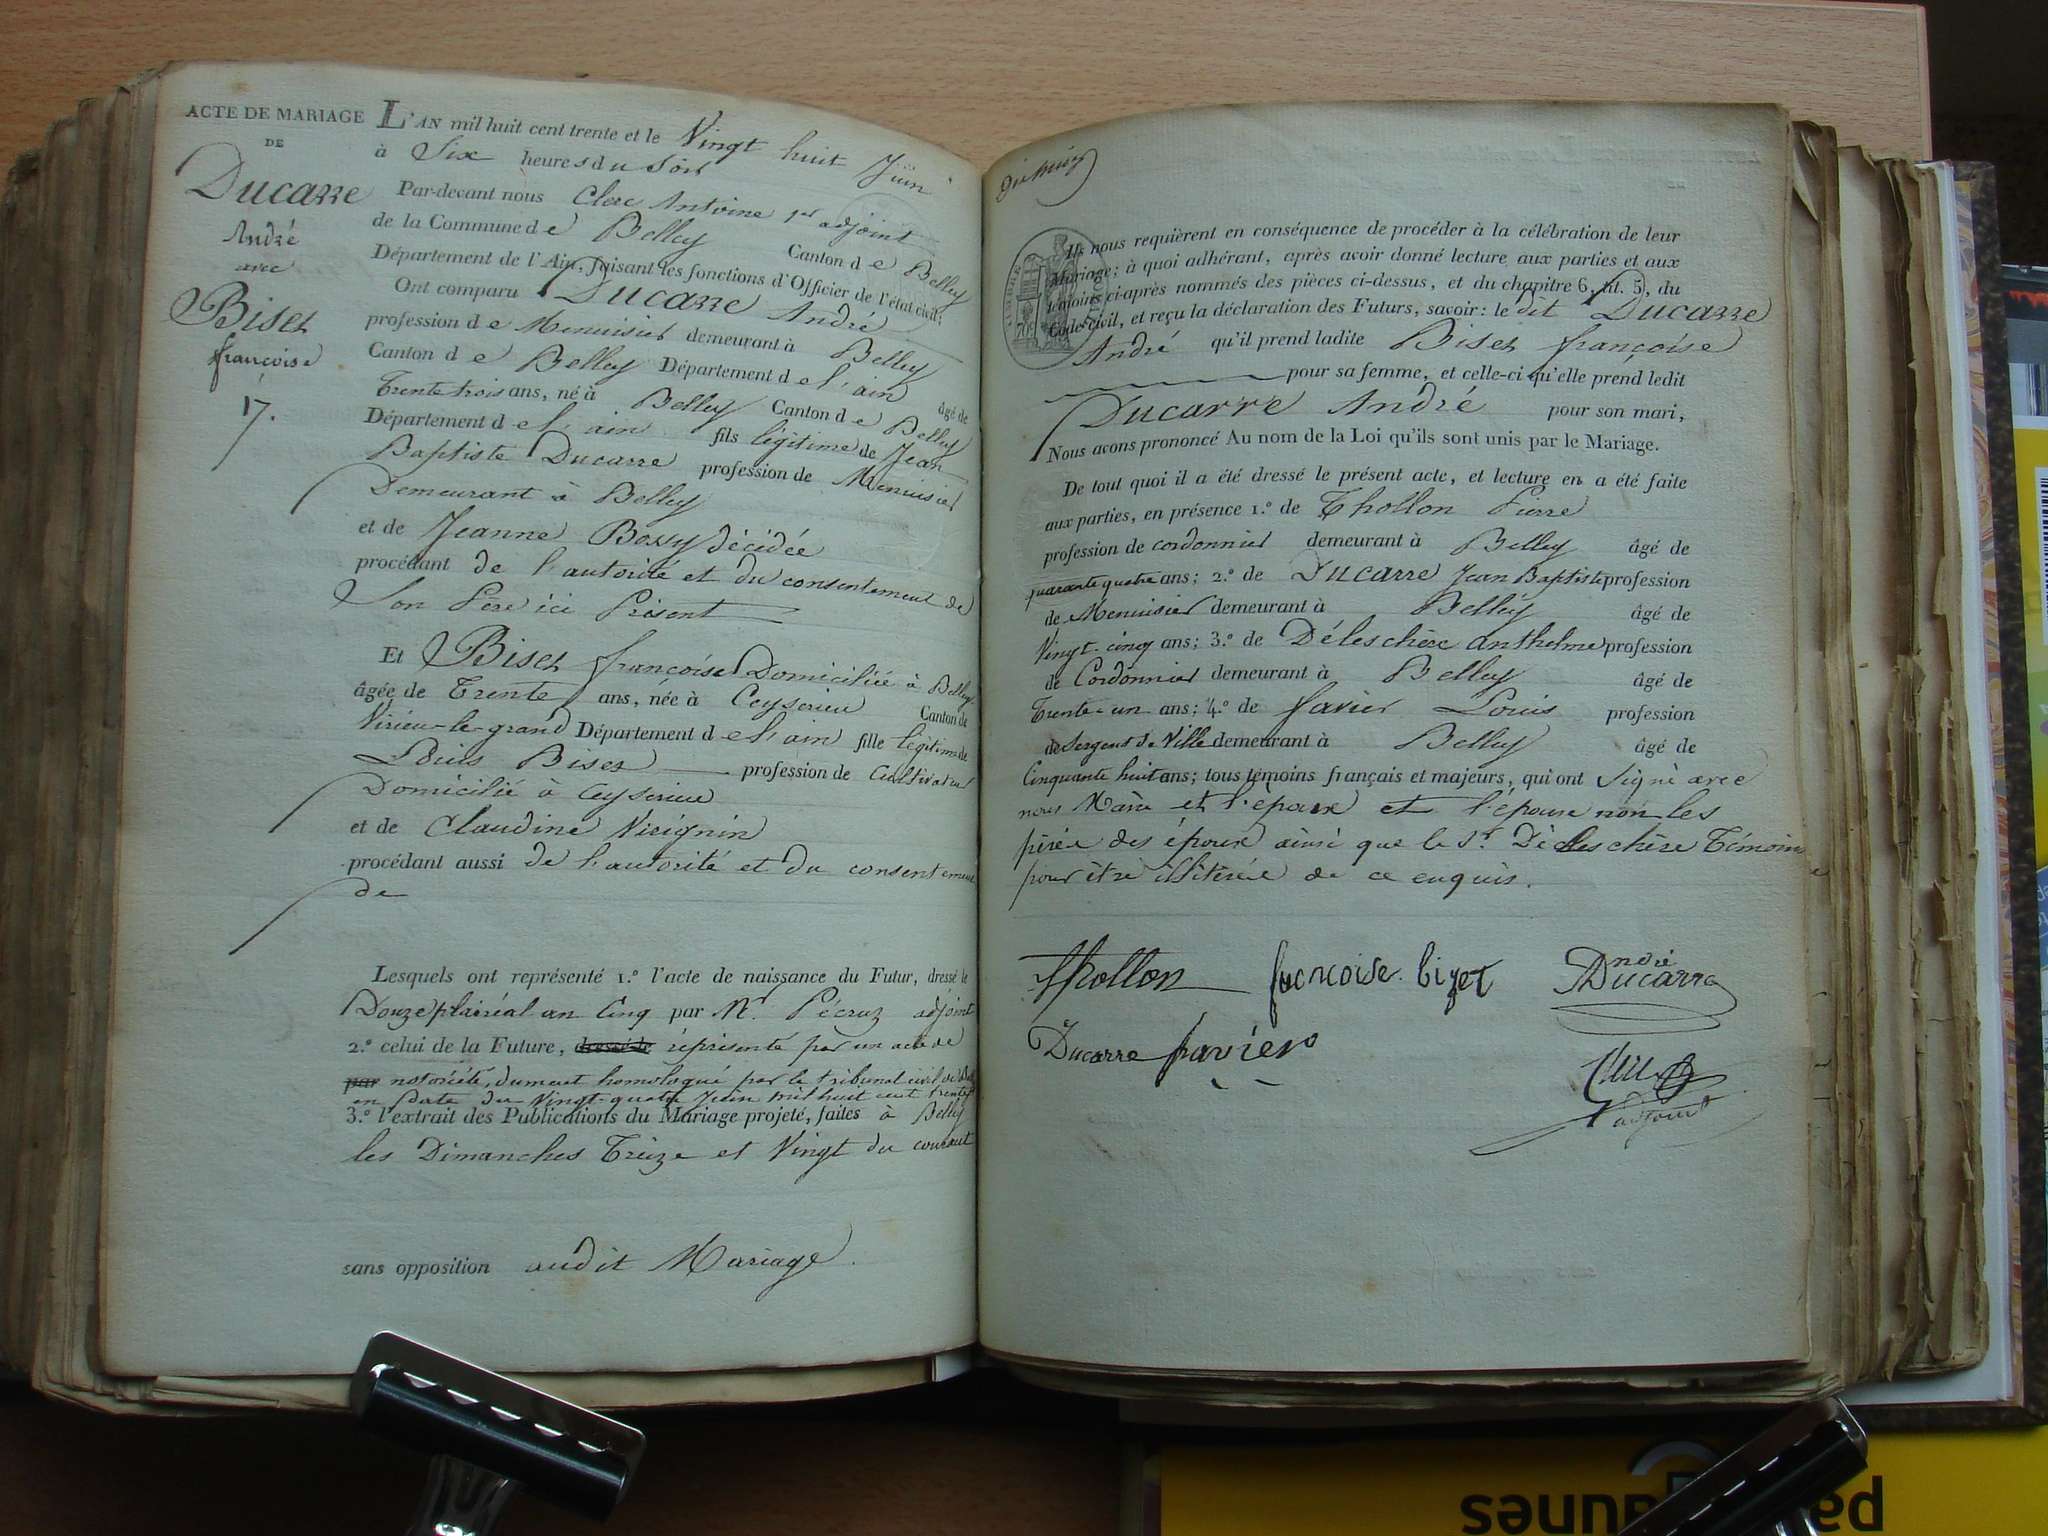 ACTE DE MARIAGE
DE
Ducarre
André
avec
Biset
françoise
17.
L'AN mil huit cent trente et le Vingt huit Juin
à Six heures du Soir
Par-devant nous Clerc Antoine 1er adjoint
de la Commune de Belley Canton de Belley
Département de l'Ain, faisant les fonctions d'Officier de l'état civil;
Ont comparu Ducarre André
profession de Menuisier demeurant à Belley
Canton de Belley Département de l'ain âgé de
Trente trois ans, né à Belley Canton de Belley
Département de l'ain fils légitime de Jean
Baptiste Ducarre profession de Menuisier
Demeurant à Belley
et de Jeanne Bossy décédée
procédant de l'autorité et du consentement de
Son Père ici Présent
Et Biset françoise Domiciliée à Belley
âgée de Trente ans, née à Ceyserieu Canton de
Virieu-le-grand Département de l'ain fille légitime de
Louis Biset profession de Cultivateur
Domicilié à Ceyserieu
et de Claudine Virignin
procédant aussi de l'autorité et du consentement
de
Lesquels ont représenté 1.º l'acte de naissance du Futur, dressé le
Douze floréal an Cinq par Mr. Pécruz adjoint
2.º celui de la Future, dressé le réprésenté par un acte de
par notoriété, dument homologué par le tribunal civil de
en Date du Vingt-quatre Juin mil huit cent trente
3.º l'extrait des Publications du Mariage projeté, faites à Belley
les Dimanches Treize et Vingt du courant
sans opposition audit Mariage.
Ils nous requièrent en conséquence de procéder à la célébration de leur
Mariage; à quoi adhérant, après avoir donné lecture aux parties et aux
témoins ci-après nommés des pièces ci-dessus, et du chapitre 6, tit. 5, du
Code civil, et reçu la déclaration des Futurs, savoir: le dit Ducarre
André qu'il prend ladite Biset françoise
pour sa femme, et celle-ci qu'elle prend ledit
Ducarre André pour son mari,
Nous avons prononcé Au nom de la Loi qu'ils sont unis par le Mariage.
De tout quoi il a été dressé le présent acte, et lecture en a été faite
aux parties, en présence 1.º de Thollon Pierre
profession de cordonnier demeurant à Belley âgé de
quarante quatre ans; 2.º de Ducarre Jean Baptiste profession
de Menuisier demeurant à Belley âgé de
Vingt-cinq ans; 3.º de Déleschère anthelme profession
de Cordonnier demeurant à Belley âgé de
Trente-un ans; 4.º de favier Louis profession
de Sergent de Ville demeurant à Belley âgé de
Cinquante huit ans; tous témoins français et majeurs, qui ont Signé avec
nous Maire et l'époux et l'épouse non les
pères des époux ainsi que le Sr. Déleschère Témoins
pour être illitérés de ce enquis.
Thollon francoise bizet André Ducarre
Ducarre faviers Clerc
adjoint